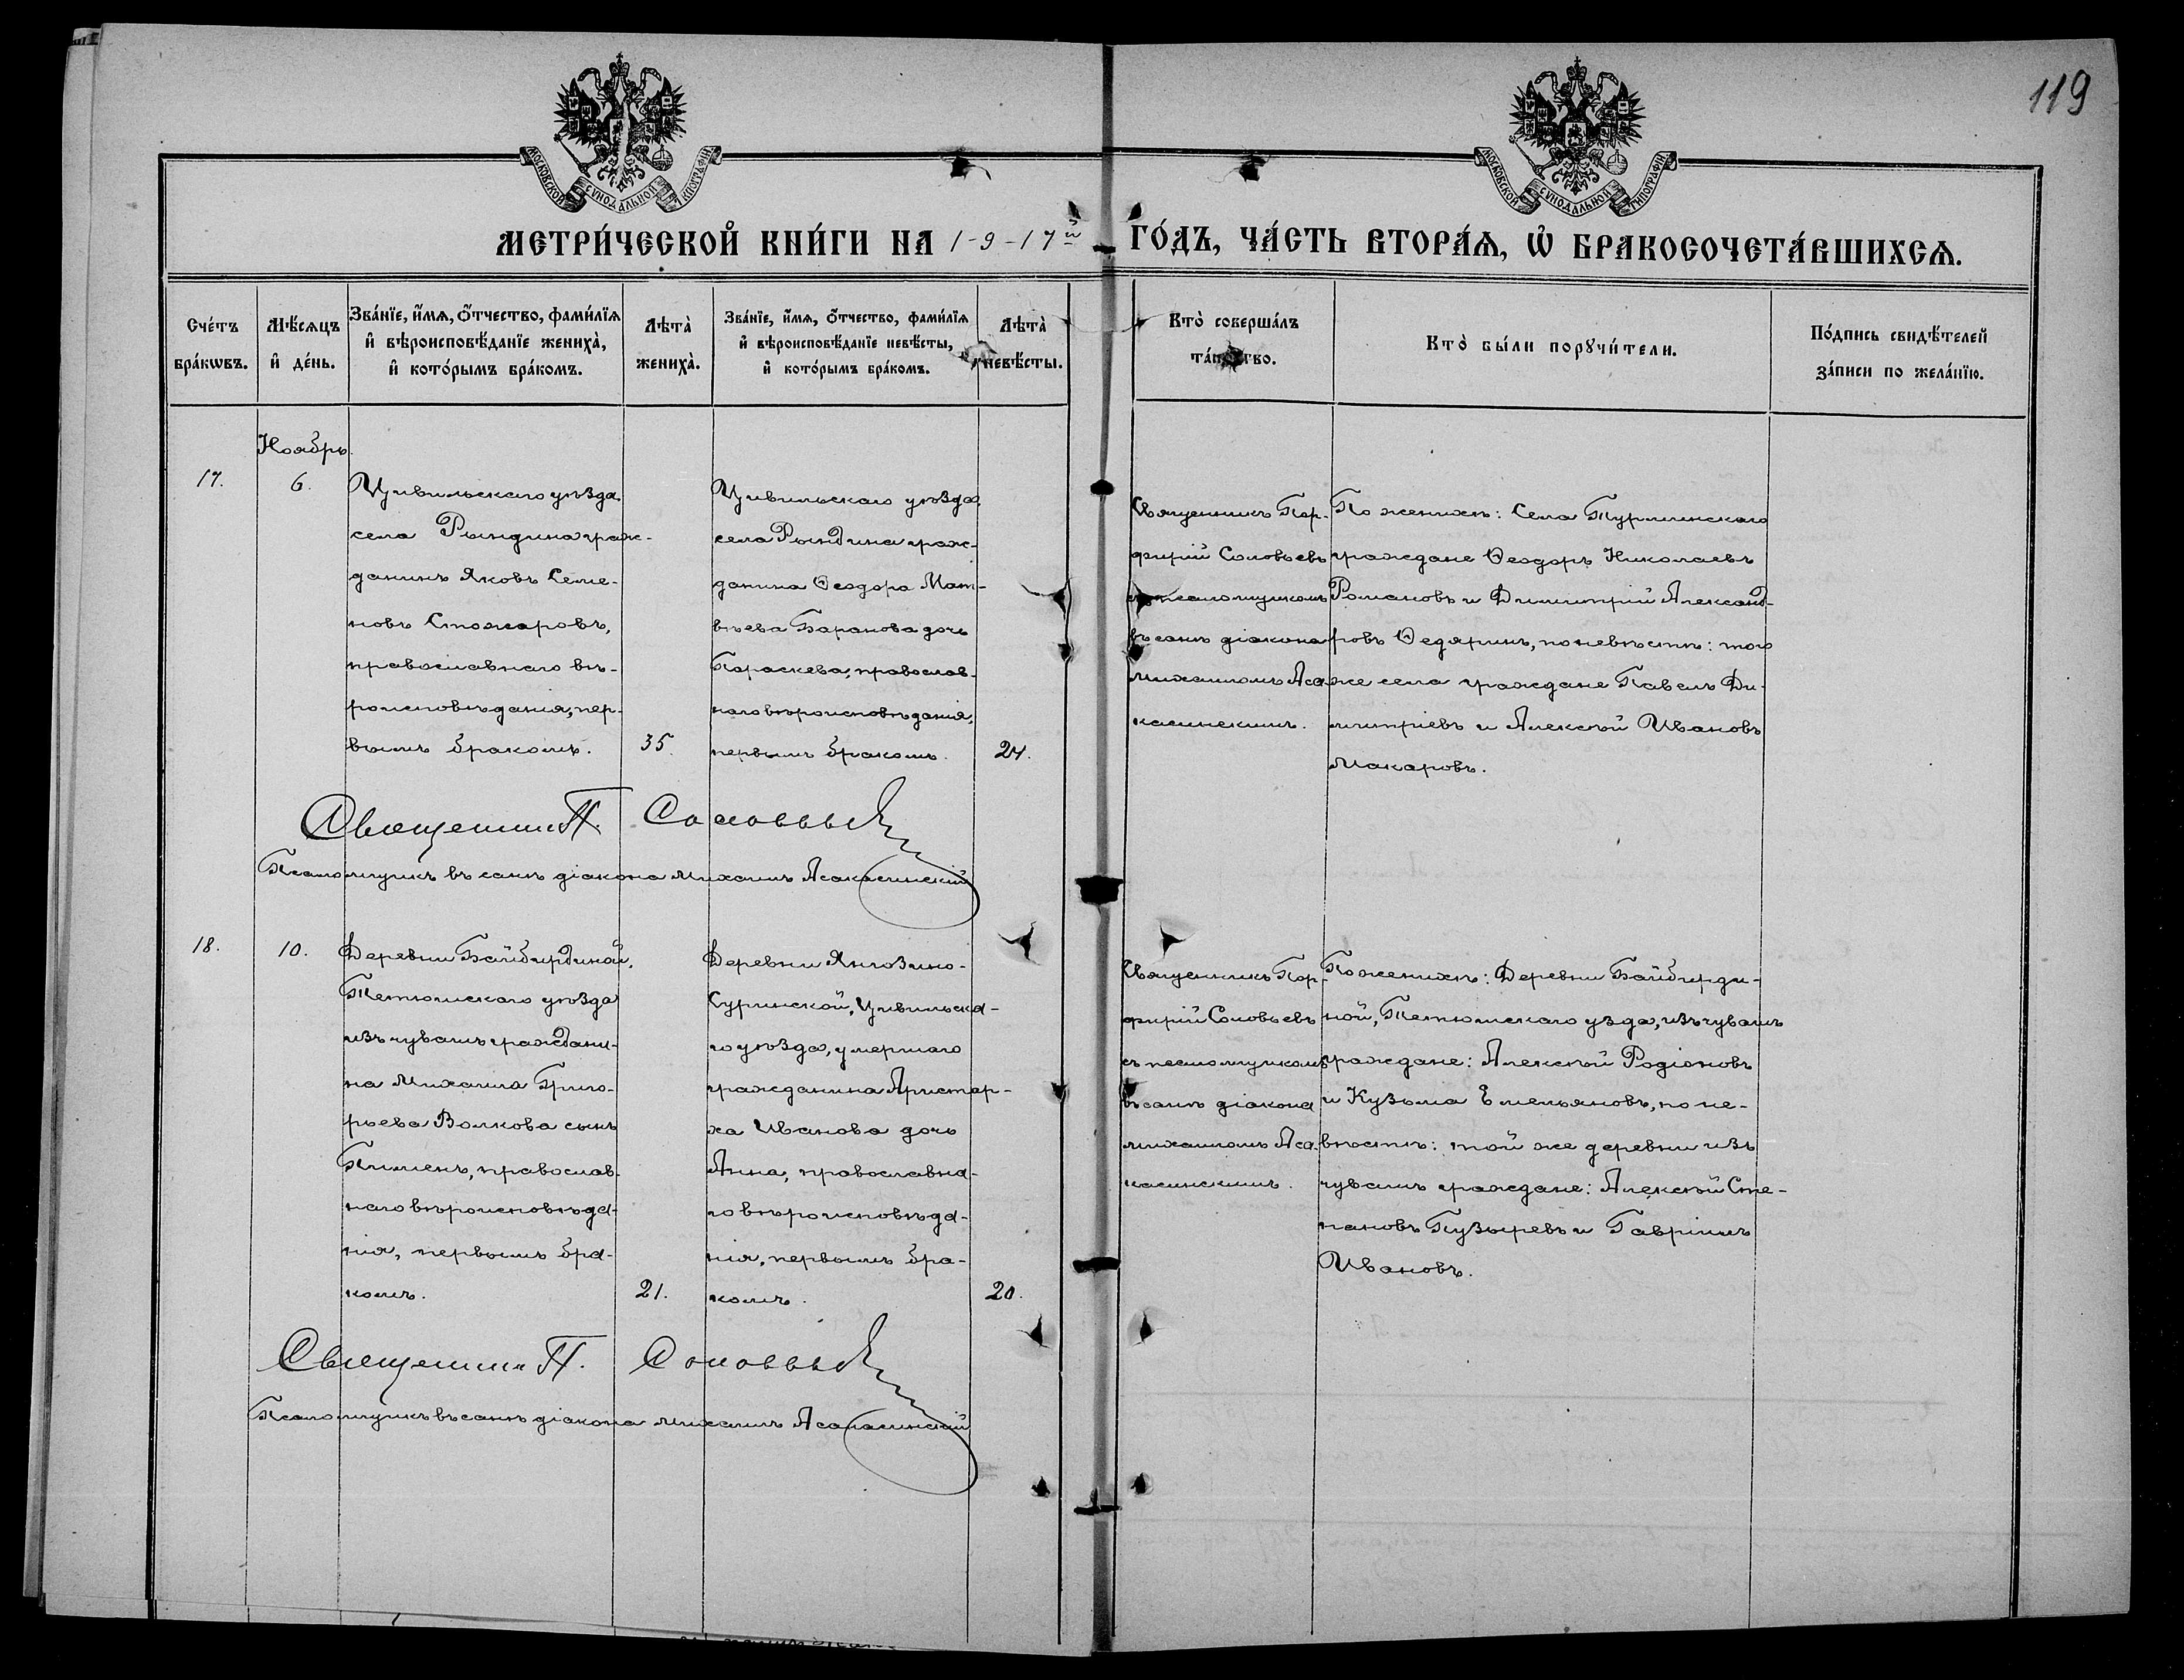 119
МОСКОВСКОЙ СѴНОДАЛЬНОЙ ТИПОГРАФІИ
МОСКОВСКОЙ СѴНОДАЛЬНОЙ ТИПОГРАФІИ
МЕТРИ́ЧЕСКОЙ КНИ́ГИ НА 1-9-17й ГО́ДЪ, ЧА́СТЬ ВТОРА́Ѧ, Ѿ БРАКОСОЧЕТА́ВШИХСѦ.
Сче́тъ
бра́кѡвъ.
Мѣ́сѧцъ
и҆ де́нь.
Зва́нїе, и҆́мѧ, ѻ҆́тчество, фами́лїѧ
и҆ вѣроисповѣ́данїе жениха̀,
и҆ кото́рымъ бра́комъ.
Лѣта̀
жениха̀.
Зва́нїе, и҆́мѧ, ѻ҆́тчество, фами́лїѧ
и҆ вѣроисповѣ́данїе невѣ́сты,
и҆ кото́рымъ бра́комъ.
Лѣта̀
невѣ́сты.
Кто̀ соверша́лъ
та́инство.
Кто̀ бы́ли порꙋчи́тели.
По́дпись свидѣ́телей
за́писи по жела́нїю.
Ноябрь
17.
6.
Цивильскаго уѣзда
села Рындина граж-
данинъ Яковъ Семе-
новъ Столяровъ,
православнаго вѣ-
роисповѣданія, пер-
вымъ бракомъ.
35.
Цивильскаго уѣзда,
села Рындина граж-
данина Ѳеодора Мат-
вѣева Баранова дочь
Параскева, православ-
наго вѣроисповѣданія,
первымъ бракомъ.
24.
Священникъ Пор-
фирій Соловьевъ
съ псаломщикомъ
въ санѣ діакона
Михаиломъ Аса-
касинскимъ.
По женихѣ: Села Турминскаго
граждане Ѳеодоръ Николаевъ
Романовъ и Димитрій Александ-
ровъ Ѳедяринъ, по невѣстѣ: того
же села граждане Павелъ Ди-
митріевъ и Алексѣй Ивановъ
Макаровъ.
Священник П. Соловьев
Псаломщикъ въ санѣ діакона Михаилъ Асакасинскій
18.
10.
Деревни Байбирдиной,
Тетюшскаго уѣзда
изъ чувашъ граждани-
на Михаила Григо-
рьева Волкова сынъ
Пименъ, православ-
наго вѣроисповѣда-
нія, первымъ бра-
комъ.
21.
Деревни Янгозино-
Суринской, Цивильска-
го уѣзда, умершаго
гражданина Аристар-
ха Иванова дочь
Анна, православна-
го вѣроисповѣда-
нія, первымъ бра-
комъ.
20.
Священникъ Пор-
фирій Соловьевъ
съ псаломщикомъ
въ санѣ діакона
Михаиломъ Аса-
касинскимъ.
По женихѣ: Деревни Байбирди-
ной, Тетюшскаго узда, изъ чувашъ
граждане: Алексѣй Родіоновъ
и Кузьма Емельяновъ, по не-
вѣстѣ: той же деревни изъ
чувашъ граждане: Алексѣй Сте-
пановъ Пузыревъ и Гавріилъ
Ивановъ.
Священник П. Соловьев
Псаломщикъ въ санѣ діакона Михаилъ Асакасинскій